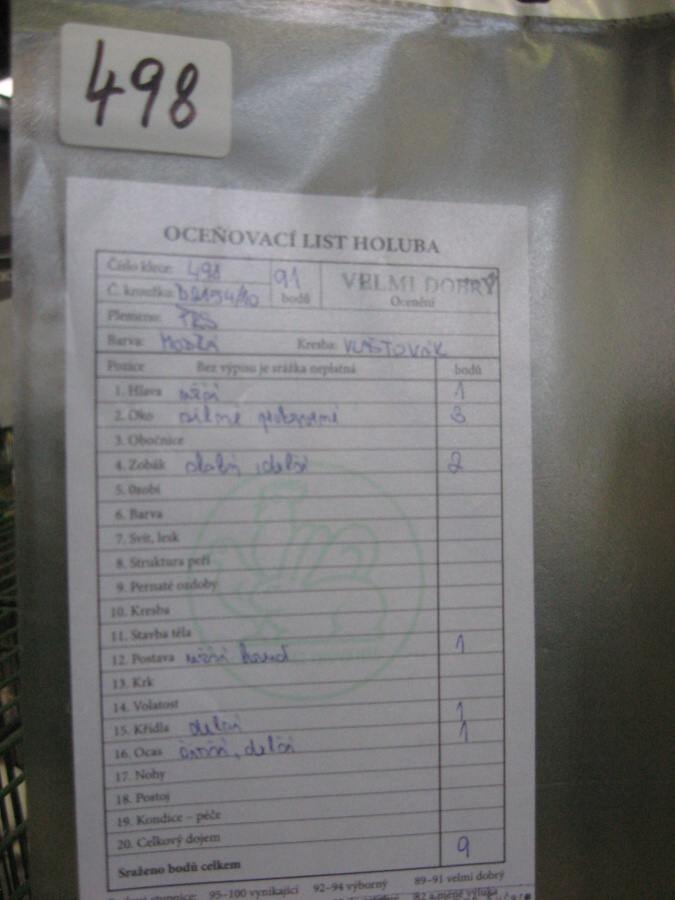 498
OCEŇOVACÍ LIST HOLUBA
Číslo klece: 498 91 VELMI DOBRÝ
Č. kroužku: bodů Ocenění
Plemeno:
Barva: MODRÁ Kresba: VLAŠTOVÁK
Pozice Bez výpisu je srážka neplatná bodů
1. Hlava užší 1
2. Oko 3
3. Obočnice
4. Zobák slabý, delší 2
5. Ozobí
6. Barva
7. Svit, lesk
8. Struktura peří
9. Pernaté ozdoby
10. Kresba
11. Stavba těla
12. Postava užší hruď 1
13. Krk
14. Volatost
15. Křídla delší 1
16. Ocas širší, delší 1
17. Nohy
18. Postoj
19. Kondice – péče
20. Celkový dojem
Sraženo bodů celkem 9
stupnice: 95–100 vynikající 92–94 výborný 89–91 velmi dobrý